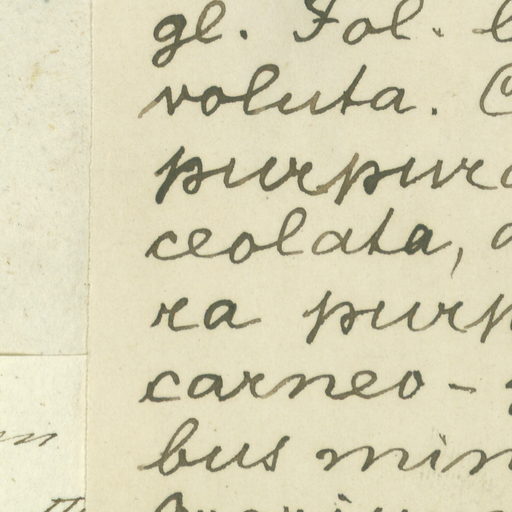 gl. Fol.
voluta.
purpur
ceolata,
ra purp
carneo-
bus min